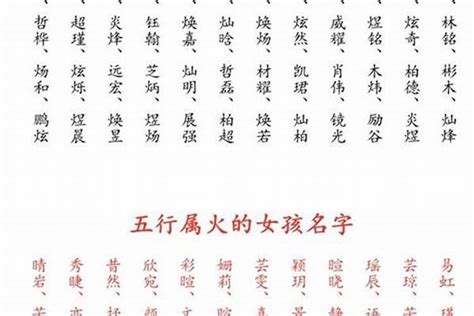 、林铭、彬木、灿烽
、炎奇、柏德、炎煜
、煜铭、木炜、励谷
、威耀、肖伟、镜光
、炫然、凯珺、灿柏
、焕炀、材耀、焕若
、灿晗、哲磊、柏超
、焕嘉、灿明、展强
、钰翰、芝炳、煜炀
、炎烽、远宏、焕昱
、超瑾、炫烁、煜晨
、哲桦、炀和、鹏炫
五行属火的女孩名字
易虹、
芸琼、
瑶辰、
暄晓、
颖玥、
芸雯、
姗莉、
彩暄、
欣宛、
昔然、
秀睫、
晴岩、